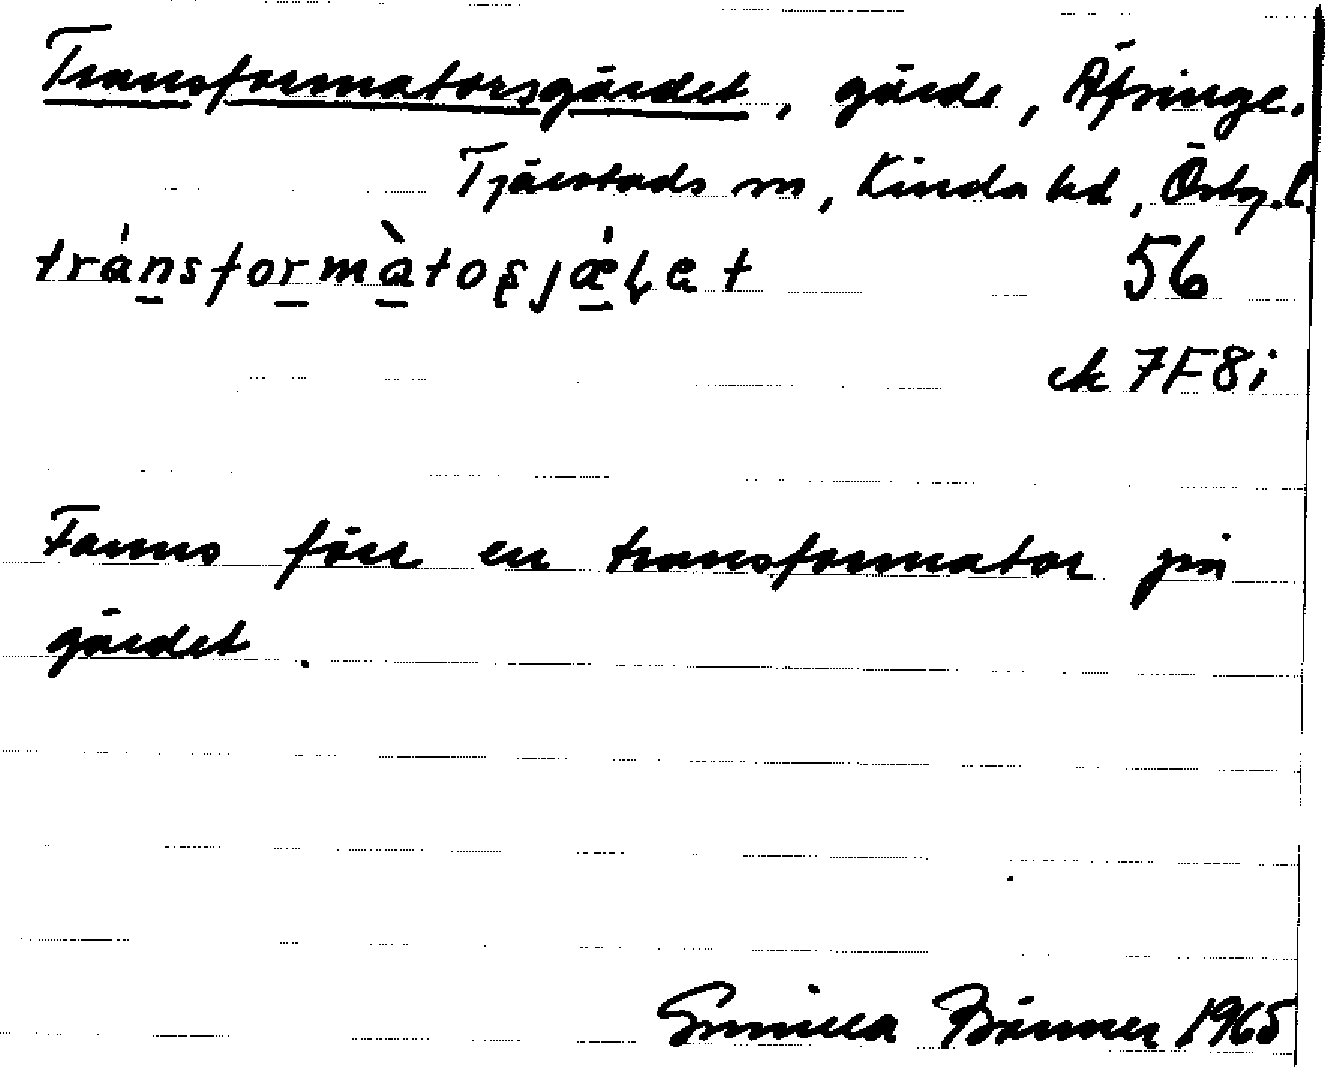 Transformatorsgärdet, gärde, Äfringe.
Tjärstads sn, Kinda hd, Östg.l.
tránsformàtoʂjǽɽet 56
ek 7F8i
Fanns förr en transformator på
gärdet.
Gunilla 1965